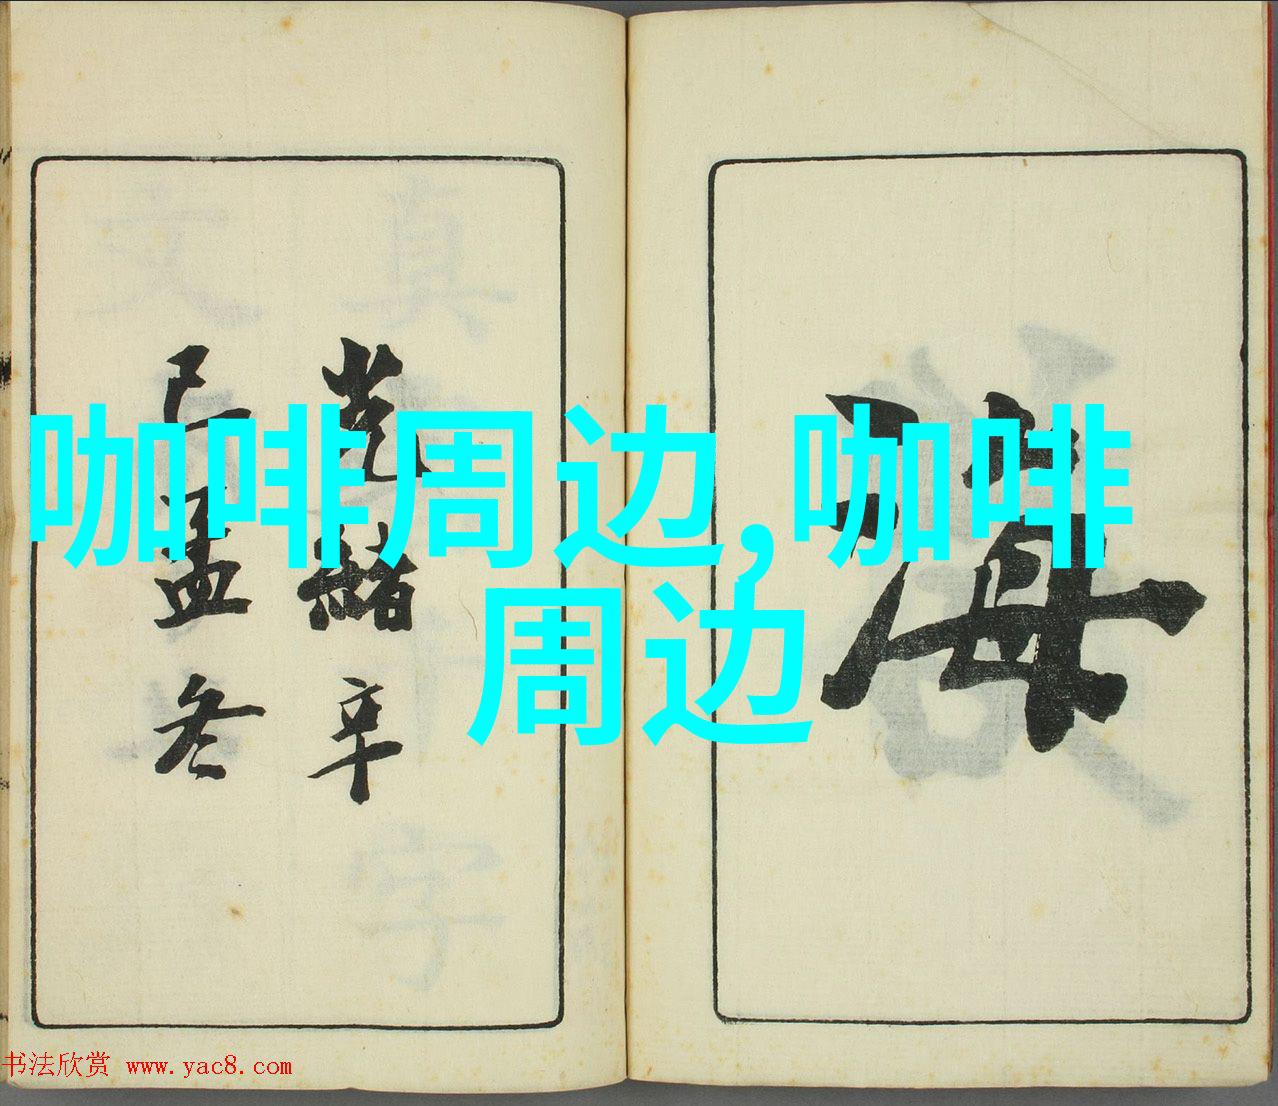 咖啡周边,咖啡
周边
海
光緒辛
巳孟冬
书法欣赏 www.yac8.com